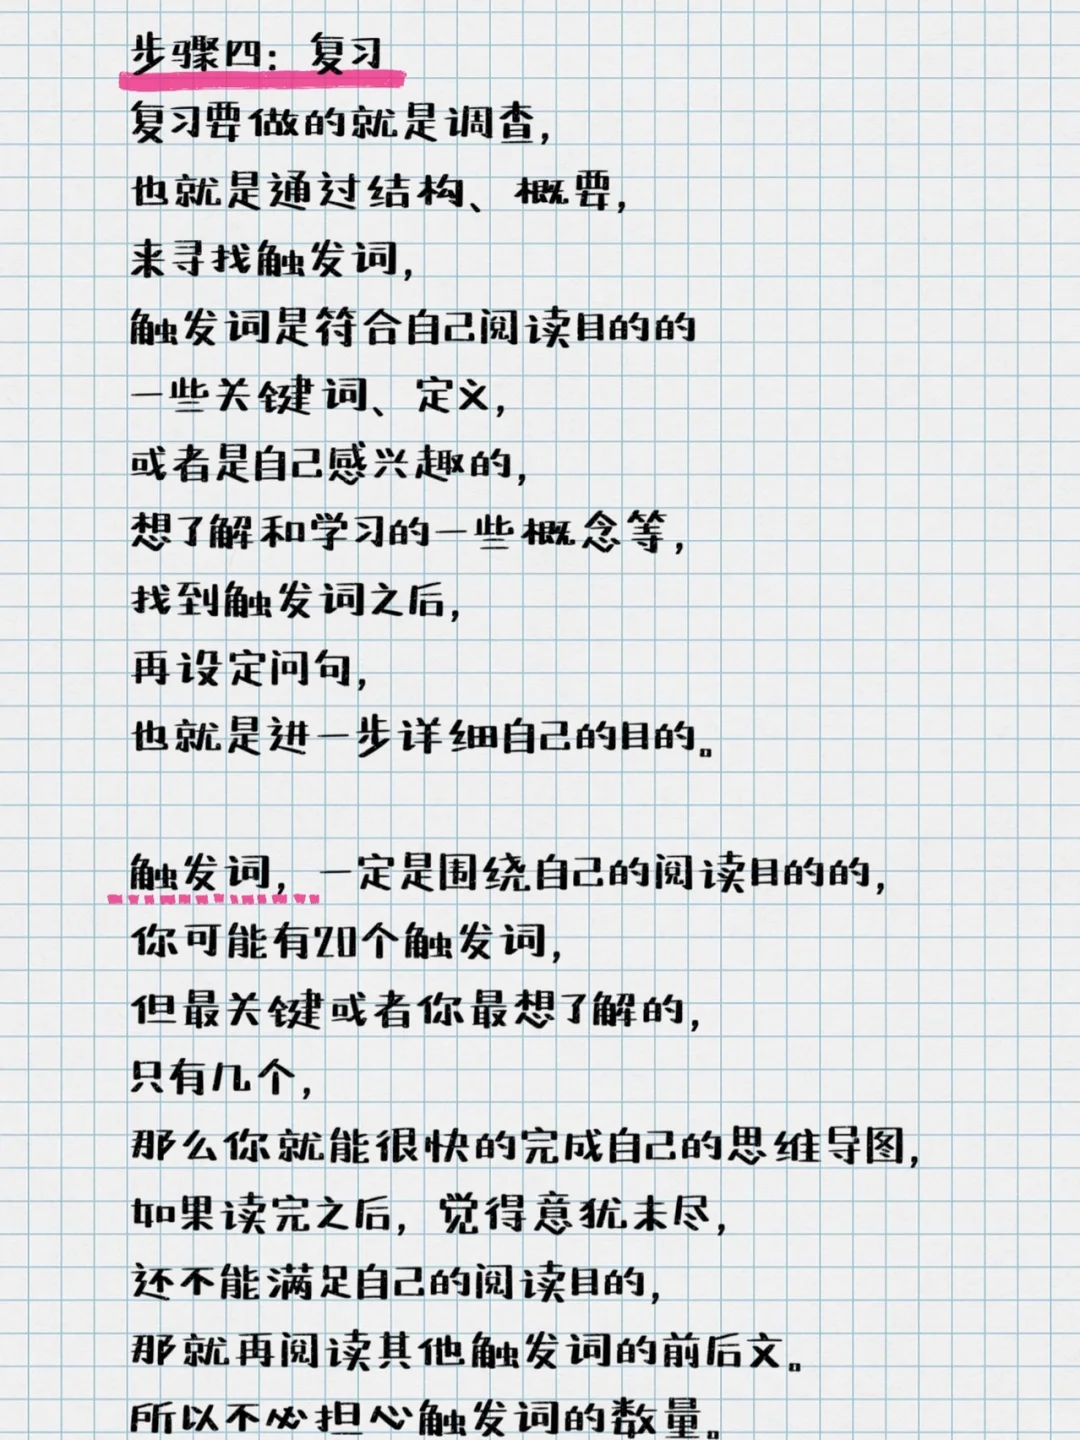 步骤四：复习
复习要做的就是调查，
也就是通过结构、概要，
来寻找触发词，
触发词是符合自己阅读目的的
一些关键词、定义，
或者是自己感兴趣的，
想了解和学习的一些概念等，
找到触发词之后，
再设定问句，
也就是进一步详细自己的目的。
触发词，一定是围绕自己的阅读目的的，
你可能有20个触发词，
但最关键或者你最想了解的，
只有几个，
那么你就能很快的完成自己的思维导图，
如果读完之后，觉得意犹未尽，
还不能满足自己的阅读目的，
那就再阅读其他触发词的前后文。
所以不必担心触发词的数量。